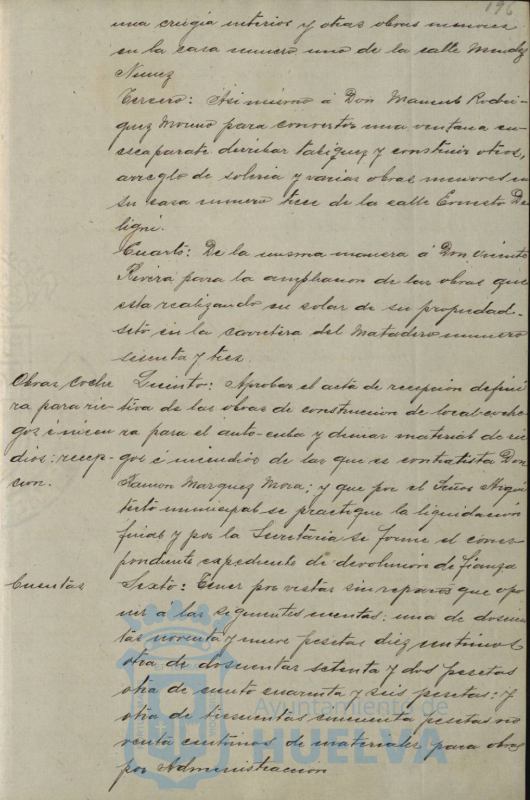 196
una crugia interior y otras obras menores
en la casa numero uno de la calle Mendez
Nuñez
Tercero: Asi mismo á Don Manuel Rodri-
guez Moreno para convertir una ventana en
escaparate derribar tabiques y construir otros,
arreglo de soleria y varias obras menores en
su casa numero trece de la calle Ernesto De
ligni.
Cuarto: De la misma manera á Don Vicente
Rivera para la ampliacion de las obras que
esta realizando en solar de su propiedad-
sito en la carretera del Matadero numero
sesenta y tres.
Obras coche
ra para rie-
gos é incen
dios: recep-
cion.
Quinto: Aprobar el acta de recepcion defini
tiva de las obras de construccion de local-coche
ra para el auto-cuba y demas material de rie
gos é incendios de las que es contratista Don
Ramon Marquez Mora; y que por el Señor Arqui
tecto municipal se practique la liquidación
final y por la Secretaria se forme el corres
pondiente expediente de devolucion de fianza
Cuentas
Sexto: Tener por vistas sin reparos que opo
ner á las siguientes cuentas: una de doscien
tas noventa y nueve pesetas diez centimos
otra de doscientas setenta y dos pesetas
otra de ciento cuarenta y seis pesetas: y
otra de trescientas cincuenta pesetas no
venta centimos de materiales para obras
por Administracion
Ayuntamiento de
HUELVA